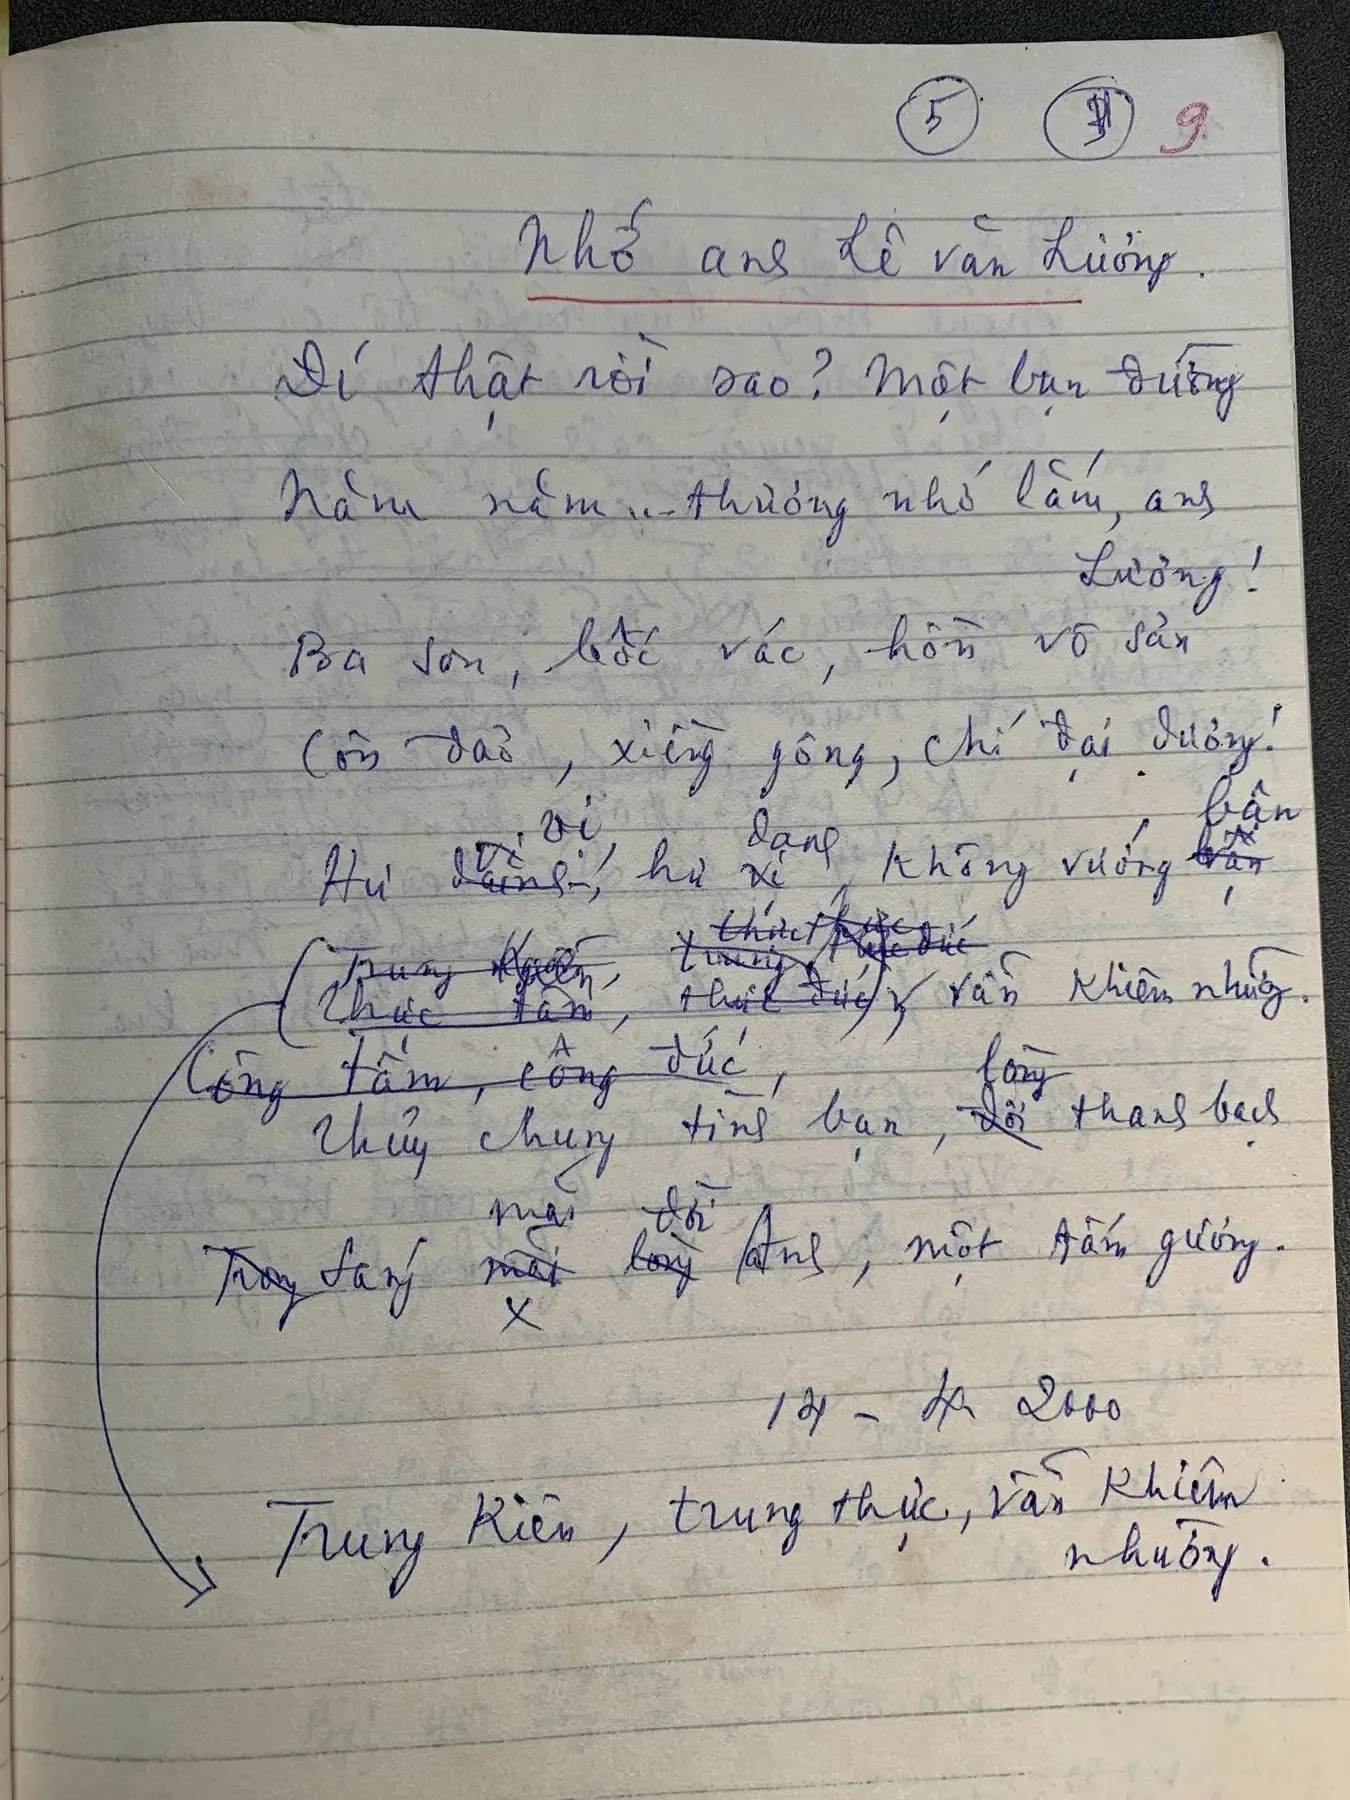 5 9
Nhớ anh Lê Văn Lương.
Đi thật rồi sao? Một bạn đường
Năm năm... thương nhớ lắm, anh
Lương!
Ba Son, bốc vác, hồn vô sản
Côn Đảo, xiềng gông, chí đại dương!
vị, danh bận
Hư hư vị, không vướng bận
Trung kiên, trung thực đức
Thực tâm, thực đức, vẫn khiêm nhường.
Công tâm, công đức, lòng
Thủy chung tình bạn, đời thanh bạch
mãi đời
Trong sáng mãi lòng Anh, một tấm gương.
x
14 - 4 2000
Trung kiên, trung thực, vẫn khiêm
nhường.